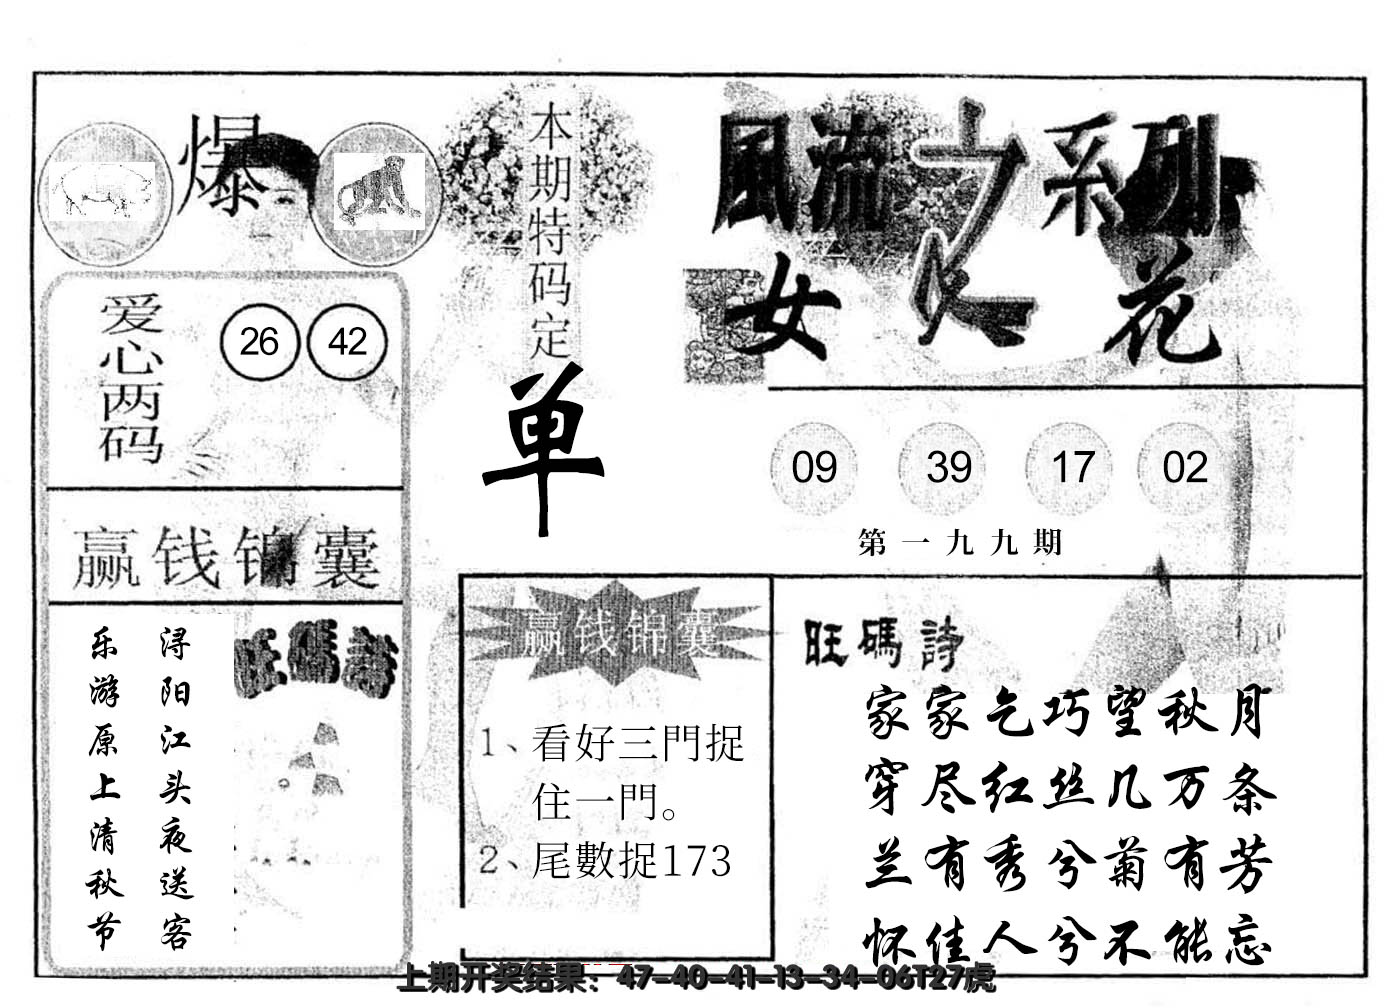 爆
本期特码定
单
風流之系列
女人花
爱心两码
26 42
09 39 17 02
第一九九期
赢钱锦囊
浔阳江头夜送客
乐游原上清秋节
旺碼詩
赢钱锦囊
1、看好三門捉
住一門。
2、尾數捉173
旺碼詩
家家乞巧望秋月
穿尽红丝几万条
兰有秀兮菊有芳
怀佳人兮不能忘
上期开奖结果：47-40-41-13-34-06T27虎